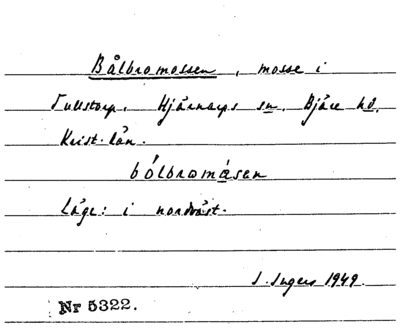 Bålbromossen, mosse i
Tullstorp, Hjärnarps sn, Bjäre hd,
Krist. län.
bólbromásen
Läge: i nordväst.
I. Ingers 1949.
Nr 5322.